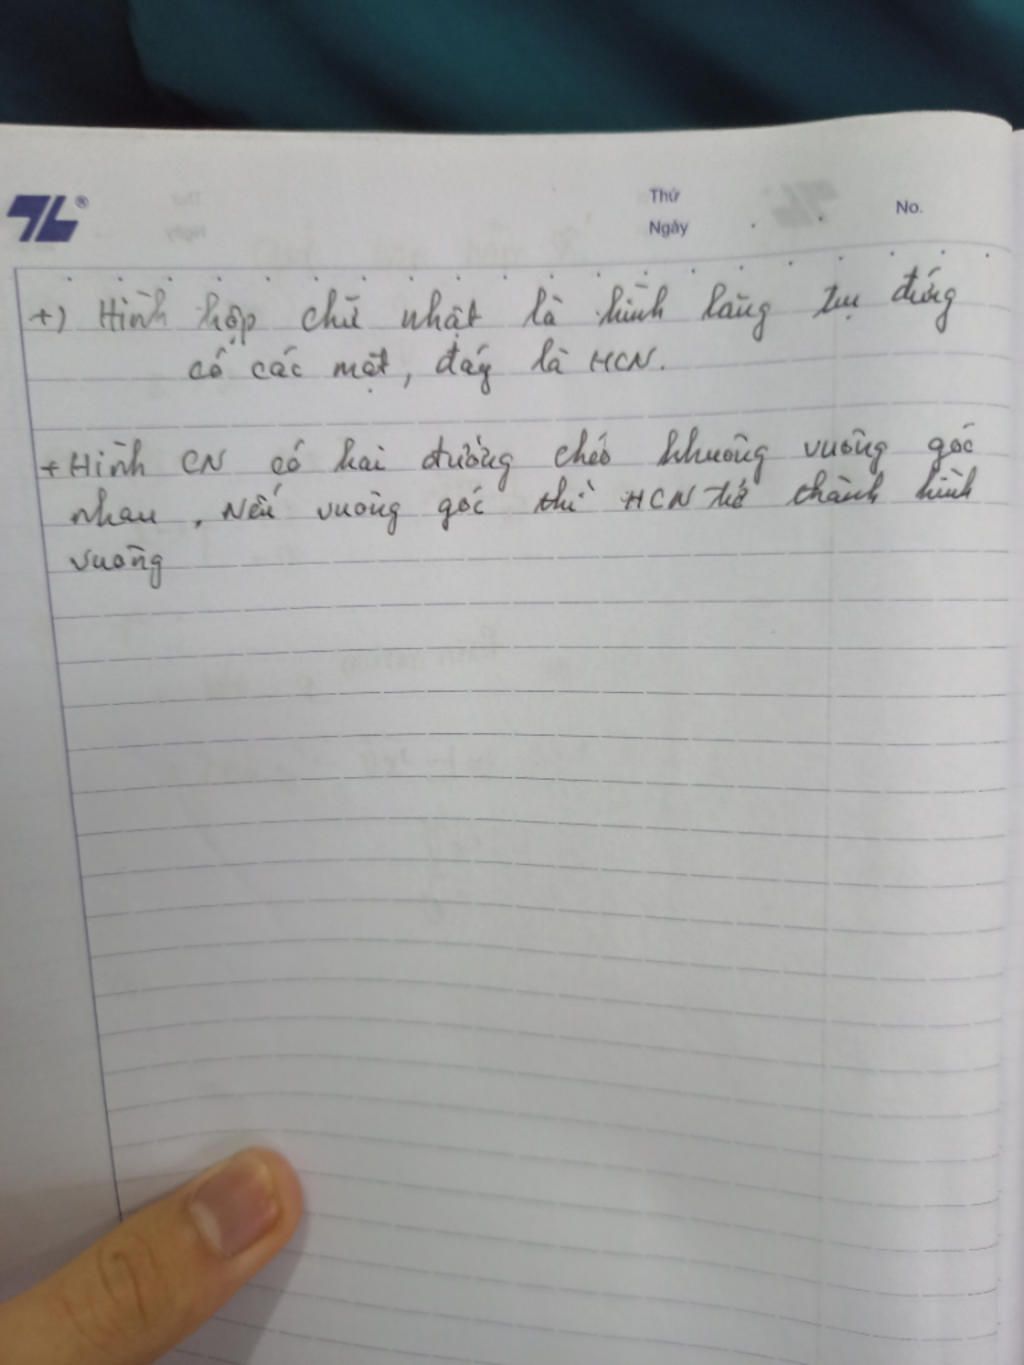 TL®
Thứ
Ngày
No.
+) Hình hộp chữ nhật là hình lăng trụ đứng
có các mặt, đáy là HCN.
+ Hình CN có hai đường chéo không vuông góc
nhau, Nếu vuông góc thì HCN trở thành hình
vuông